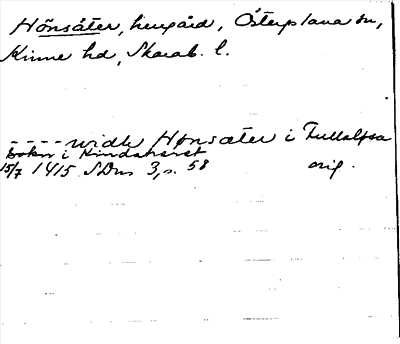 Hönsäter, herrgård, Österplana sn,
Kinne hd, Skarab. l.
---- widh Hønsæter i Fullalfsa
sokn i Kindahæret
15/7 1415 SDns 3, s. 58 orig.